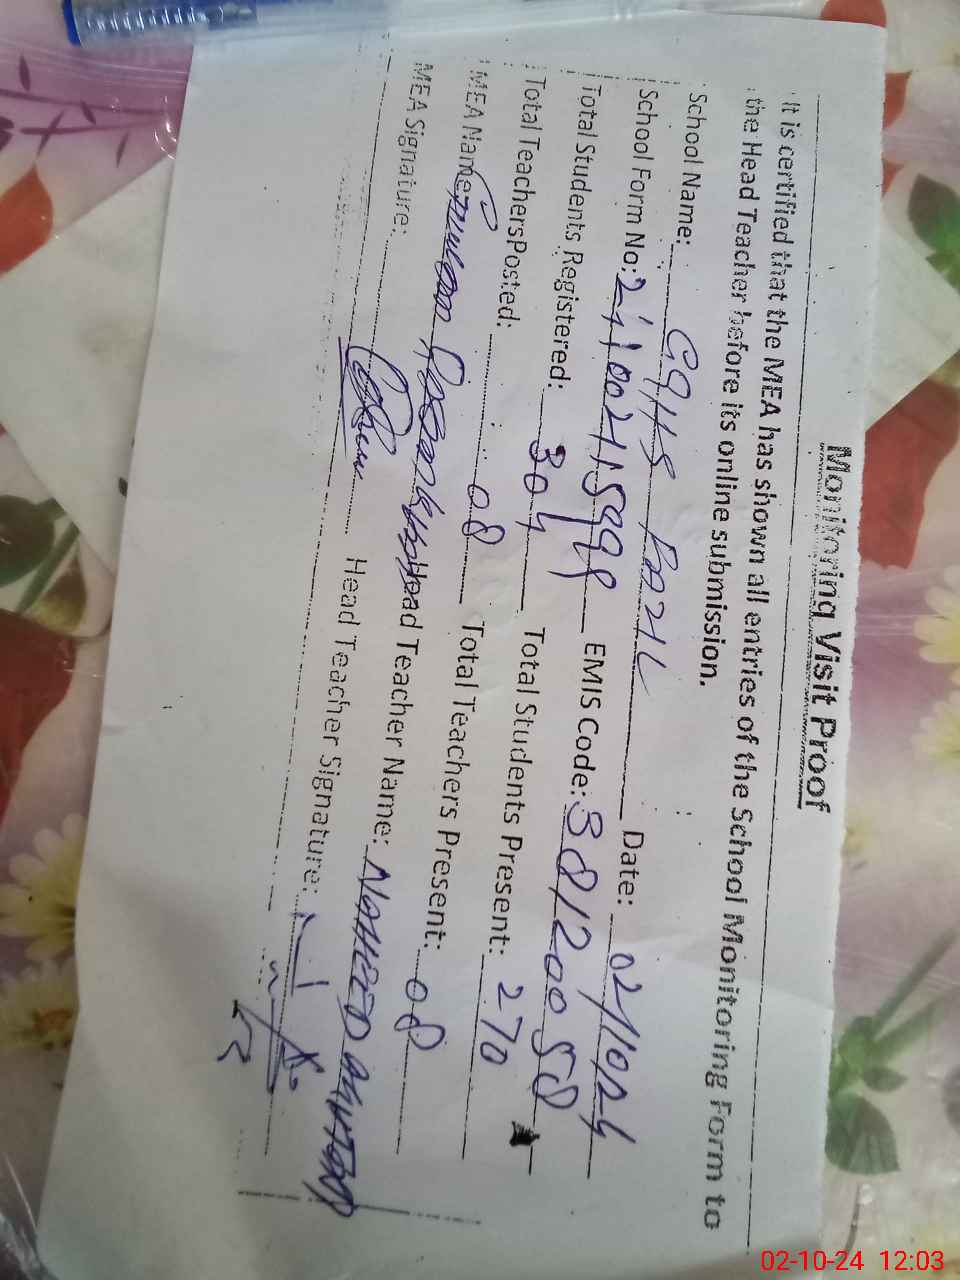 Monitoring Visit Proof
It is certified that the MEA has shown all entries of the School Monitoring Form to
the Head Teacher before its online submission.
School Name: GGHS Date: 02/10/24
School Form No: EMIS Code: 38120058
Total Students Registered: 304 Total Students Present: 270
Total TeachersPosted: 08 Total Teachers Present: 08
MEA Name Head Teacher Name:
MEA Signature: Head Teacher Signature:
02-10-24 12:03